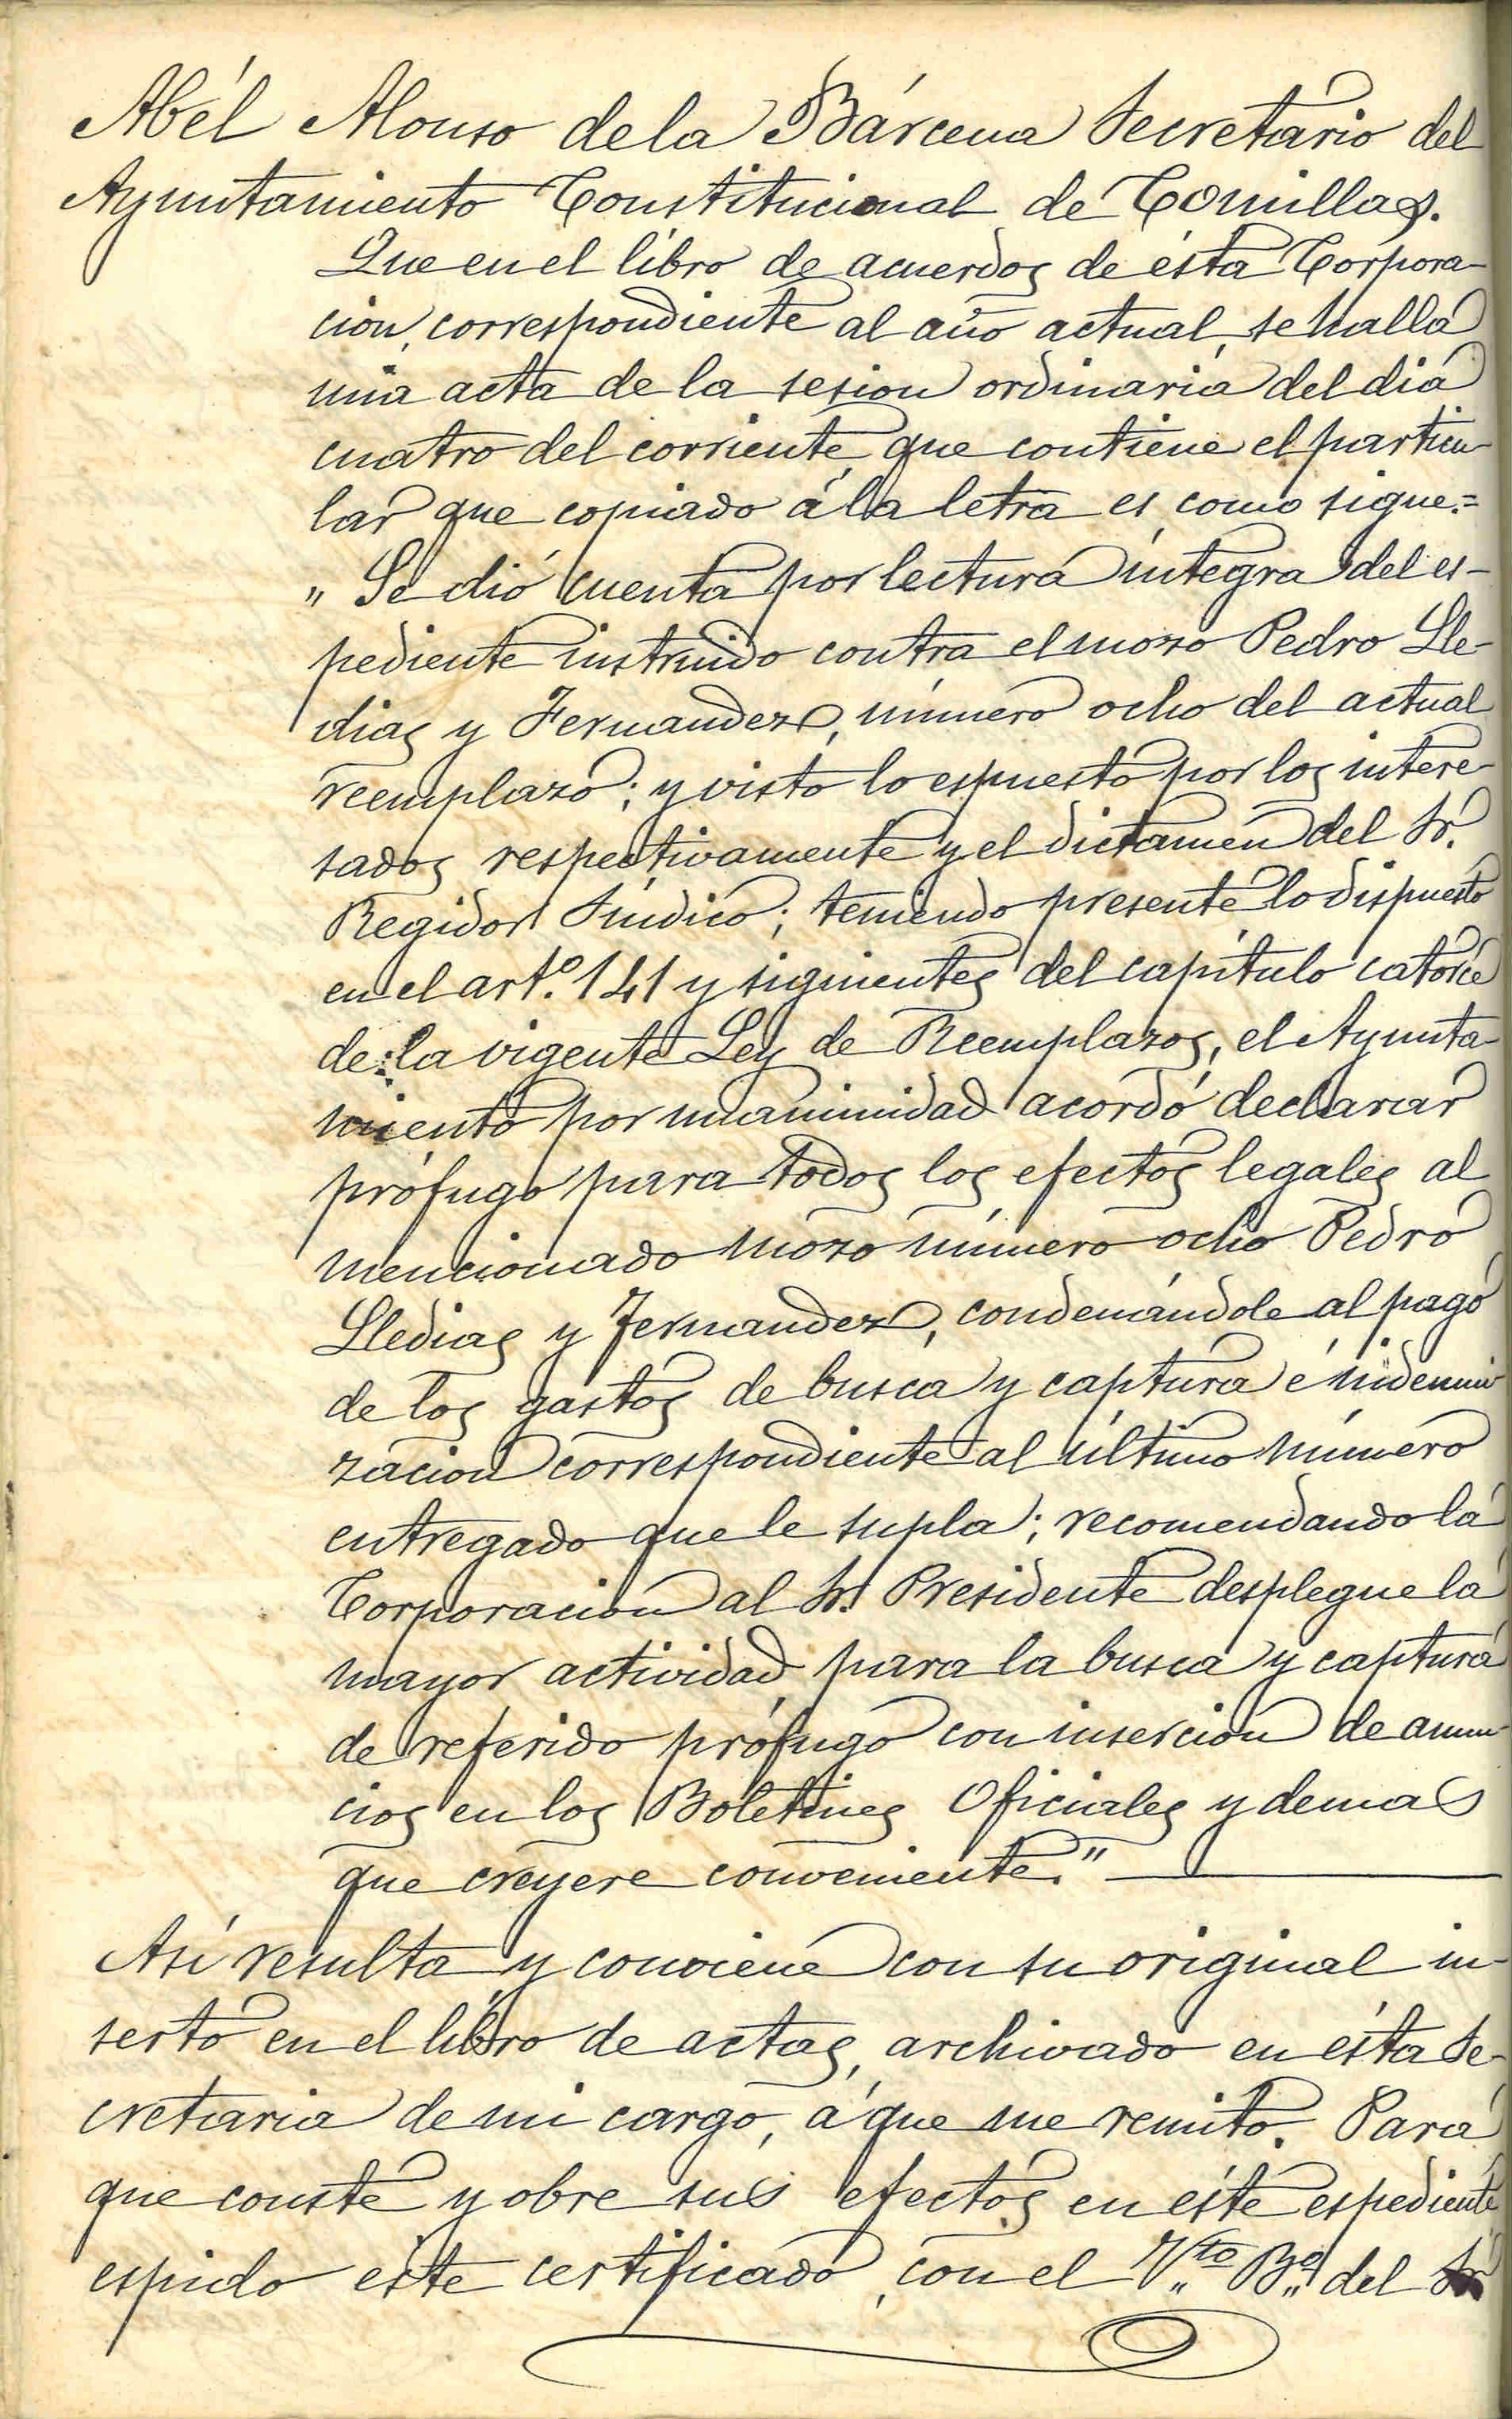 Abél Alonso de la Bárcena Secretario del
Ayuntamiento Constitucional de Comillas.
Que en el libro de acuerdos de ésta Corpora-
cion, correspondiente al año actual, se halla
una acta de la sesion ordinaria del dia
cuatro del corriente, que contiene el particu-
lar que copiado á la letra es como sigue.=
„ Se dió cuenta por lectura íntegra del es-
pediente instruido contra el mozo Pedro Lle-
dias y Fernandez, número ocho del actual
reemplazo; y visto lo espuesto por los intere-
sados respectivamente y el dictamen del Sr.
Regidor Síndico; teniendo presente lo dispuesto
en el art.º 141 y siguientes del capítulo catorce
de la vigente Ley de Reemplazos, el Ayunta-
miento por unanimidad acordó declarar
prófugo para todos los efectos legales al
mencionado mozo número ocho Pedro
Lledias y Fernandez, condenándole al pago
de los gastos de busca y captura é indemni-
zacion correspondiente al último número
entregado que le supla; recomendando la
Corporacion al Sr. Presidente desplegue la
mayor actividad para la busca y captura
de referido prófugo con insercion de anun-
cios en los Boletines Oficiales y demas
que creyere conveniente."
Así resulta y conviene con su original in-
serto en el libro de actas, archivado en ésta Se-
cretaria de mi cargo, á que me remito. Para
que conste y obre sus efectos en éste espediente
espido este certificado, con el V.to B.º del Sr